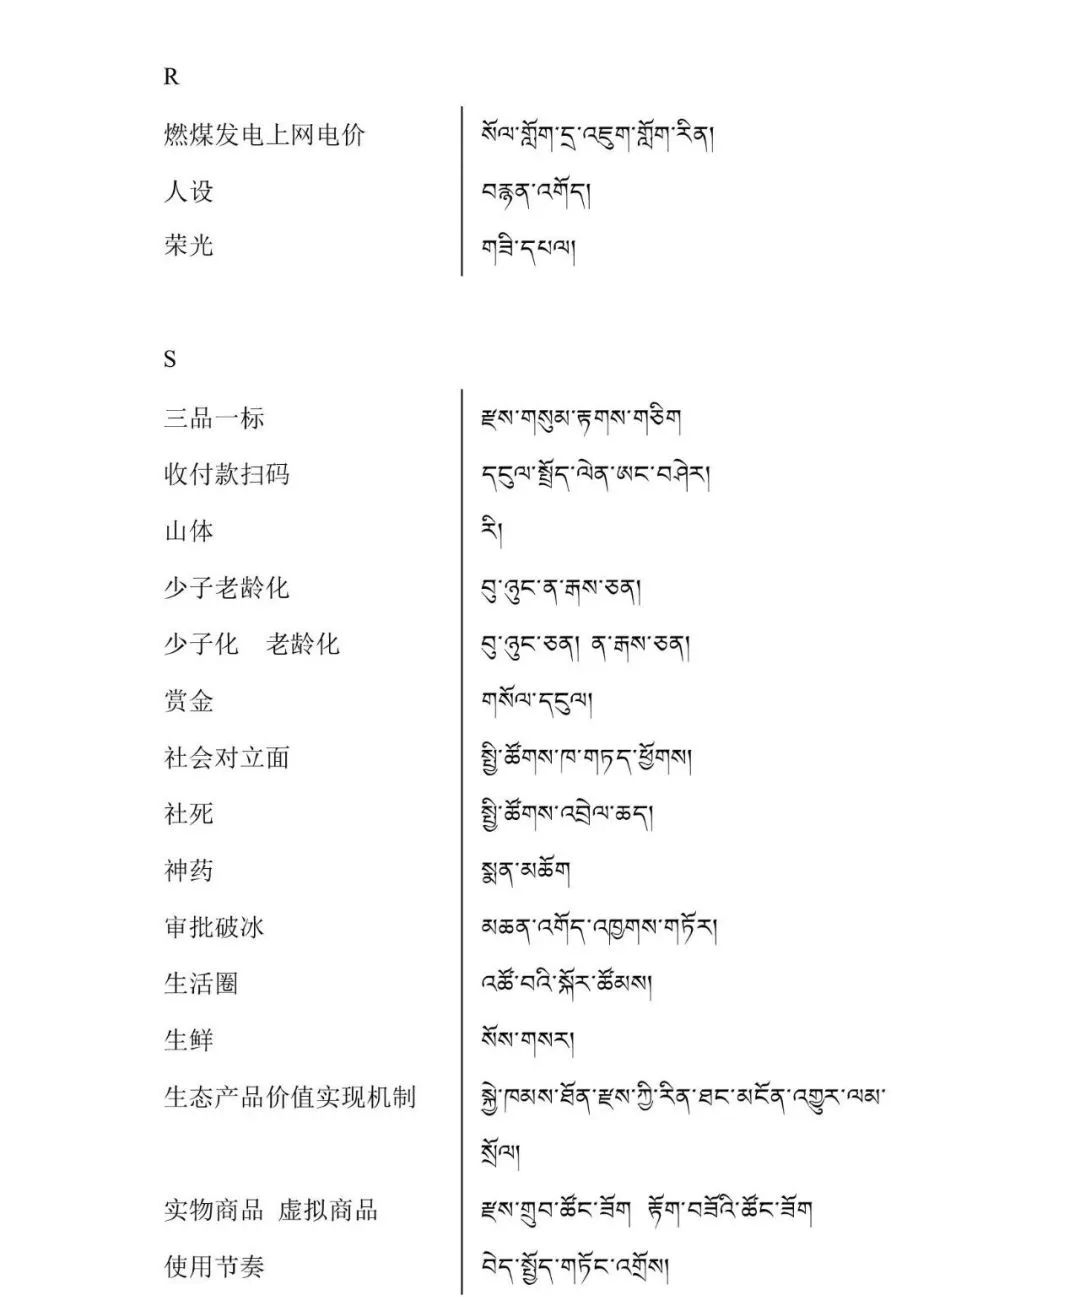 R
燃煤发电上网电价 སོལ་གློག་དྲ་འཇུག་གློག་རིན།
人设 བརྙན་འགོད།
荣光 གཟི་དཔལ།
S
三品一标 རྫས་གསུམ་རྟགས་གཅིག
收付款扫码 དངུལ་སྤྲོད་ལེན་ཨང་བཤེར།
山体 རི།
少子老龄化 བུ་ཉུང་ན་རྒས་ཅན།
少子化 老龄化 བུ་ཉུང་ཅན། ན་རྒས་ཅན།
赏金 གསོལ་དངུལ།
社会对立面 སྤྱི་ཚོགས་ཁ་གཏད་ཕྱོགས།
社死 སྤྱི་ཚོགས་འབྲེལ་ཆད།
神药 སྨན་མཆོག
审批破冰 མཆན་འགོད་འཁྱགས་གཏོར།
生活圈 འཚོ་བའི་སྐོར་ཚོམས།
生鲜 སོས་གསར།
生态产品价值实现机制 སྐྱེ་ཁམས་ཐོན་རྫས་ཀྱི་རིན་ཐང་མངོན་འགྱུར་ལམ་
སྲོལ།
实物商品 虚拟商品 རྫས་གྲུབ་ཚོང་ཟོག རྟོག་བཟོའི་ཚོང་ཟོག
使用节奏 བེད་སྤྱོད་གཏོང་འགྲོས།